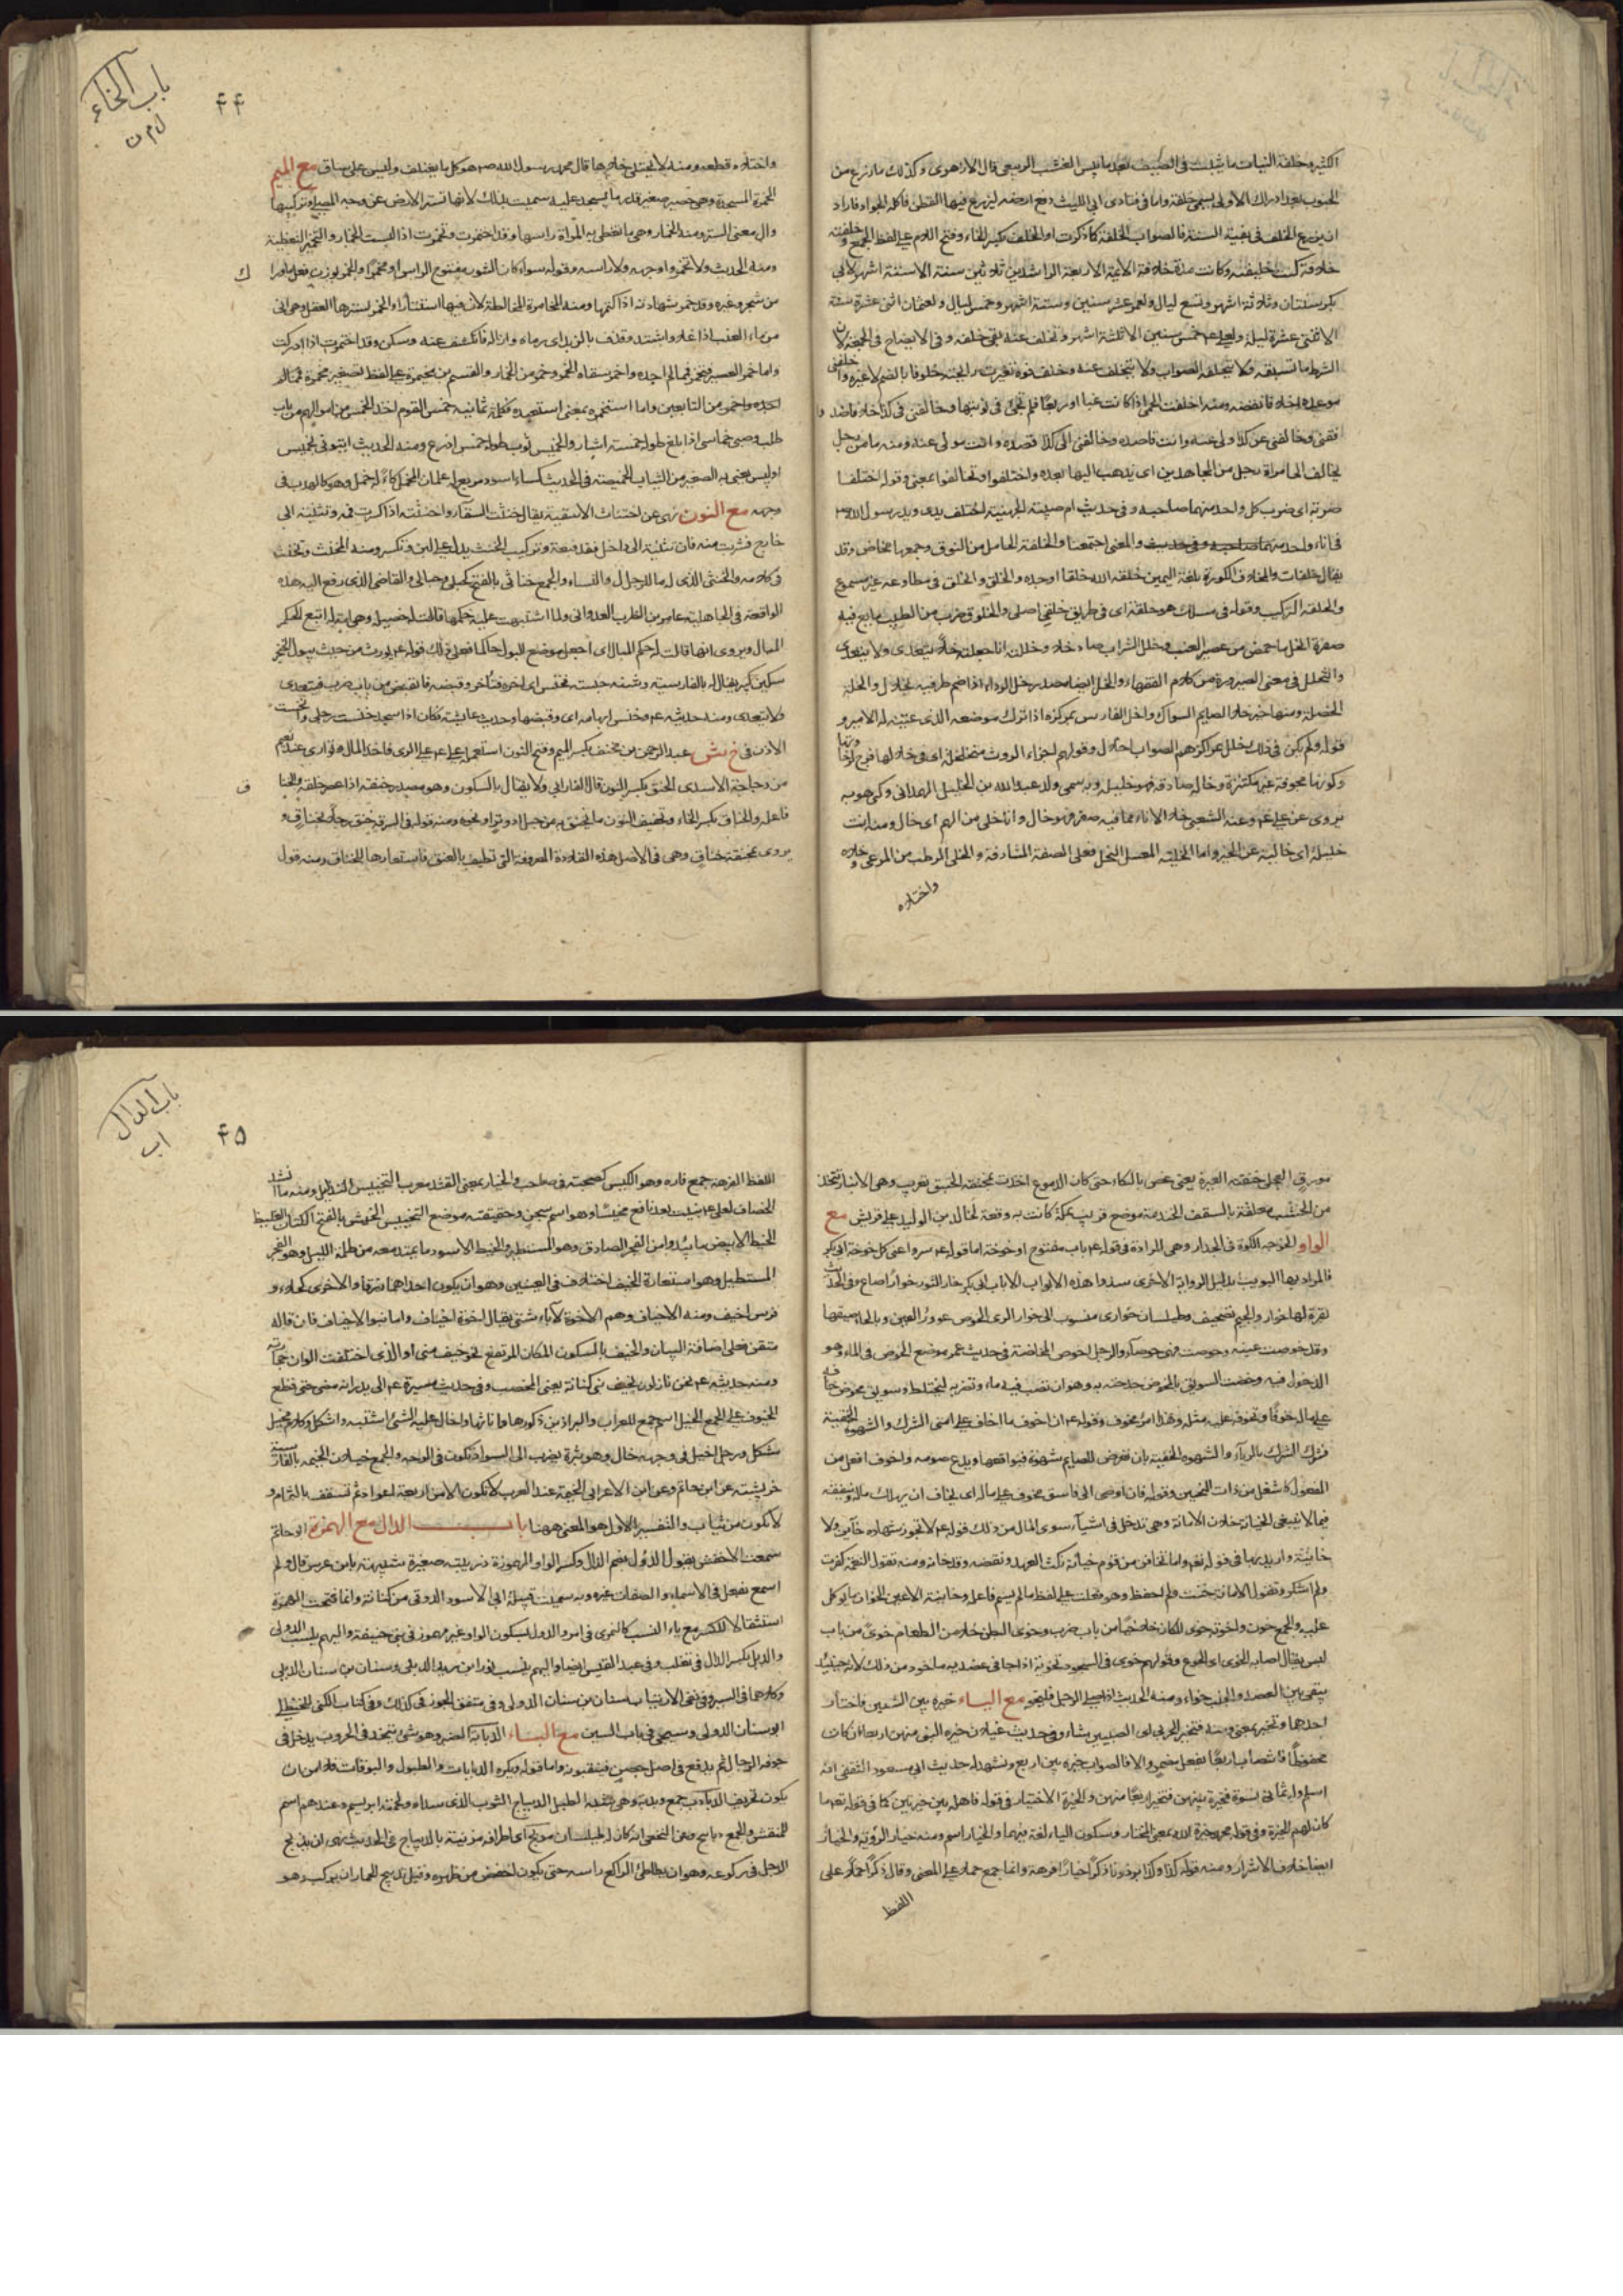 اكثر وخلفة النبات ما ينبت فى الصيف بعد ما يبس العشب الربيعى قال الازهرى وكذلك ما زرع من
الحبوب بعد ادراك الاولى يسمى خلفة واما فى فتاوى ابى الليث دفع ارضه ليزرع فيها القطن فاكله الجراد فاراد
ان يزرع الخلف فى بقية السنة فالصواب الخلفة كما ذكرت او الخلف بكسر الخاء وفتح اللام على لفظ الجمع وخلفته
خلافة كنت خليفته وكانت مدة خلافة الائمة الاربعة الراشدين ثلاثين سنة الا ستة اشهر لابى
بكر سنتان وثلاثة اشهر وتسع ليال ولعمر عشر سنين وستة اشهر وخمس ليال ولعثمان اثنى عشرة سنة
الا اثنتى عشرة ليلة ولعلى خمس سنين الا ثلثة اشهر وتخلف عنه بقى خلفه وفى الايضاح فى الجمعة لان
الشرط ما تسبقه فلا تتخلف الصواب ولا تتخلف عنه وخلف فوه تغيرت رايحته خلوفا بالضم لا غير واخلفنى
موعده اخلافا نقضه ومنه اخلفت الحمى اذا كانت غبا او ربعا فلم تجئ فى نوبتها وخالفنى فى كذا خلافا ضد وا
فقنى وخالفنى عن كذا ولى عنه وانت قاصده وخالفنى الى كذا قصده وانت مول عنه ومنه ما من رجل
يخالف الى امراة رجل من المجاهدين اى يذهب اليها بعده واختلفوا وتخالفوا بمعنى وقوله اختلفا
ضربة اى ضرب كل واحد منهما صاحبه وفى حديث ام صبية الجهنية اختلف يدى ويد رسول الله
فى اناء واحد والمعنى اجتمعنا والخلفة الحامل من النوق وجمعها مخاض وقد
يقال خلفات والمخلاف الكورة بلغة اليمن خلقه الله خلقا اوجده والخلق والخلق فى مطاوعه غير مسموع
والخلقة التركيب وقوله فى مسلك هو خلقة اى فى طريق خلقى اصلى والخلوق ضرب من الطيب مايع فيه
صفرة الخل ما حمض من عصير العنب وخلل الشراب صار خلا وخللته انا جعلته خلا يتعدى ولا يتعدى
والتخلل فى معنى الصيرورة من كلام الفقهاء والخل ايضا مصدر خل الرداء اذا ضم طرفيه بخلال والخلة
الخصلة ومنها خير خلال الصايم السواك واخل الفارس بمركزه اذا ترك موضعه الذى عينه له الامير و
قوله ولم يكن فى ذلك يخلل عن اكثرهم الصواب اخلال وقولهم اجزاء الروث متخللة اى فى خلالها فرج لرخا وتها
وكونها مجوفة غير مكتنزة وخاله صادقه فهو خليله وبه سمى والد عبد الله بن الخليل الهمدانى وكى هو به
يروى عن على وعنه الشعبى خلا الاناء مما فيه صفر فهو خال وانا خلى من الهم اى خال ومنه انت
خلية اى خالية عن الخير واما الخلية لمعسل النحل فعلى الصفة المشارفة والخلى الرطب من المرعى وخلاه
واختلاه
باب الخاء
ل م ن
٤٤
واختلاه قطعه ومنه لا يختلى خلاها قال محمد رسول الله هو كل ما يعتلف وليس على ساق مع الميم
الخمرة المسجدة وهى حصير صغير قدر ما يسجد عليه سميت بذلك لانها تستر الارض عن وجه المصلى وتركيبها
دال معنى الستر ومنه الخمار وهى ما تغطى به المراة راسها وقد اختمرت وتخمرت اذا لبست الخمار والتخمير التغطية
ومنه الحديث ولا تخمروا وجهه ولا راسه وقوله سواء كان الثور مفتوح الراس او مخمرا والخمر بوزن فعل ما وراك
من شجر وغيره وقد خمر شهادته اذا كتمها ومنه المخامرة المخالطة لان فيها استتارا والخمر بسترها العقل وهى النى
من ماء العنب اذا غلا واشتد وقذف بالزبد اى رماه وازاله فانكشف عنه وسكن وقد اختمرت اذا ادركت
واما خمر العصير فتخمر فما لم اجده واخمر سقاه الخمر وخمر من الخمار والقسم بن مخيمرة على لفظ تصغير مخمرة ثما لم
اجده واخمر من التابعين واما استخمره بمعنى استعبده فكلمة يمانية خمس القوم اخذ الخمس من اموالهم من باب
طلب وصبى خماسى اذا بلغ طوله خمسة اشبار والخميس ثوب طوله خمس اذرع ومنه الحديث ايتونى بخميس
او لبيس يعنى به الصغير من الثياب الخميصة فى الحديث كساء اسود مربع له علمان المخمل كساء له خمل وهو كالهدب فى
وجهه مع النون نهى عن اختناث الاسقية يقال خنثت السقاء واختنثته اذا كسرت فمه وثنيته الى
خارج فشربت منه فان ثنيته الى داخل فقد قبعته وتركيب الخنث يدل على لين وتكسر ومنه المخنث وتخنث
فى كلامه والخنثى الذى له ما للرجال والنساء والجمع خناثى بالفتح كحبلى وحبالى والقاضى الذى رفع اليه هذه
الواقعة فى الجاهلية عامر بن الظرب العدوانى ولما اشتبهت عليه حكمها قالت له خصيلة وهى امة له اتبع الحكم
المبال ويروى انها قالت له حكم المبال اى اجعل موضع البول حاكما فعلى ذلك قوله يورث من حيث يبول الخنجر
سكين كبير يقال له بالفارسية دشنه خنسه فخنس اى اخره فتاخر وقبضه فانقبض من باب ضرب فيتعدى
ولا يتعدى ومنه حديثه وخنس ابهامه اى وقبضها وحديث عائشة فكان اذا سجد خنست رجلى وانخنست
الاذن فى خ ش عبد الرحمن بن مخنف بكسر الميم وفتح النون استعمله على الرى فاخذ المال وتوارى عند نعيم
من دجاجة الاسدى الخنق بكسر النون قال الفارابى ولا يقال بالسكون وهو مصدر خنقه اذا عصر حلقه والخناق
فاعله والخناق بكسر الخاء وتخفيف النون ما يخنق به من حبل او وتر او نحوه ومنه قوله فى السرقة خنق رجلا بخناق و
يروى بمخنقة خناق وهى فى الاصل هذه القلادة المعروفة التى تطيف بالعنق فاستعارها للخناق ومنه قول
مورق العجلى خنقته العبرة يعنى غص بالبكاء حتى كان الدموع اخذت بمخنقه الخنبق تعريب وهى الانبار تتخذ
من الخشب معلقة بالسقف الخندمة موضع قريب بمكة كانت به وقعة لخالد بن الوليد على قريش مع
الواو الخوخة الكوة فى الجدار وهى المرادة فى قوله باب مفتوح او خوخة اما قوله سدوا عنى كل خوخة
فالمراد بها البويب بدليل الرواية الاخرى سدوا هذه الابواب الا باب ابى بكر خار الثور خوارا صاح وفى الحديث
بقرة لها خوار والجيم تصحيف وطيلسان خوارى منسوب الى خوار الرى الخوص غوور العين وبالحاء ضيقها
وقد خوصت عينه وحوصت وهى خوصاء والرجل اخوص المخاضة فى حديث عمر موضع الخوض فى الماء وهو
الدخول فيه وخضت السويق بالمخوض جدحته به وهو ان تصب فيه ماء وتضربه ليختلط وسويق مخوض خافه
على ماله خوفا وتخوف عليه مثله وهذا امر مخوف وقوله ان اخوف ما اخاف على امتى الشرك والشهوة الخفية
فسر الشرك بالرياء والشهوة الخفية بان تعرض للصايم شهوة فيواقعها ويدع صومه واخوف افعل من
المفعول كاشغل من ذات النحيين وقوله فان اوصى الى فاسق مخوف على ماله اى يخاف ان يهلك ماله وينفقه
فيما لا ينبغى الخيانة خلاف الامانة وهى تدخل فى اشياء سوى المال من ذلك قوله لا تجوز شهادة خاين ولا
خاينة واريد بها فى قوله نعم واما تخافن من قوم خيانة نكث العهد ونقضه وقد خانه ومنه تقول النعمة كفرت
ولم اشكر وتقول الامانة خنت ولم احفظ وهو فعلت على لفظ ما لم يسم فاعله وخاينة الاعين الخوان ما يوكل
عليه والجمع خون واخونة خوى المكان خلا خيا من باب ضرب وخوى البطن خلا من الطعام خوى من باب
لبس يقال اصابه الخوى اى الجوع وقولهم خوى فى السجود تخوية اذا جافى عضديه ماخوذ من ذلك لانه حينئذ
يبقى بين العضد والجنب خواء ومنه الحديث اذا صلى الرجل فليخو مع الياء خيره بين الشيئين فاختار
احدهما وتخير بمعنى ومنه فيتخير الحربى اى الصبيين شاء وفى حديث غيلان خيره النبى منهن اربعا ان كان
محفوظا فانتصاب اربعا بفعل مضمر والا فالصواب خيره بين اربع ويشهد له حديث ابى مسعود الثقفى انه
اسلم وله ثمانى نسوة فخيره بينهن فتخير اربعا منهن والخيرة الاختيار فى قوله فاهله بين خيرتين كما فى قوله تعالى ما
كان لهم الخيرة وفى قوله محمد خيرة الله بمعنى المختار وسكون الياء لغة فيهما والخيار اسم ومنه خيار الرؤية والخيار
ايضا خلاف الاشرار ومنه قوله كذا وكذا برذونا ذكرا خيارا فرهة وانما جمع حملا على المعنى وقال ذكرا حملا على
اللفظ
باب الدال
ا ب
٤٥
اللفظ الفرهة جمع فاره وهو الكيس كصحبة فى صاحب والخيار بمعنى القثد معرب التخييس التذليل ومنه ما انشد
الخصاف لعلى بنيت بعد نافع مخيسا وهو اسم سجن وحقيقته موضع التخييس الخيش بالفتح الكتان الغليظ
الخيط الابيض ما يبدو من الفجر الصادق وهو المستطير والخيط الاسود ما يمتد معه من ظلمة الليل وهو الفجر
المستطيل وهو استعارة الخيف اختلاف فى العينين وهو ان يكون احداهما زرقا والاخرى كحلاء و
فرس اخيف ومنه الاخياف وهم الاخوة لآباء شتى يقال اخوة اخياف واما بنو الاخياف فان قاله
متقن فعلى اضافة البيان والخيف بالسكون المكان المرتفع نحو خيف منى او الذى اختلفت الوان حجارته
ومنه حديثه نحن نازلون بخيف بنى كنانة يعنى المحصب وفى حديث مسيره الى بدر انه مضى حتى قطع
الخيوف على الجمع الخيل اسم جمع للعراب والبراذين ذكورها واناثها واخال عليه الشئ اشتبه واشكل وكلام مخيل
مشكل ورجل اخيل فى وجهه خال وهو بثرة يضرب الى السواد تكون فى الوجه والجمع خيلان الخيمة بالفارسية
خرپشته عن ابى حاتم وعن ابن الاعرابى الخيمة عند العرب لا تكون الا من اربعة اعواد ثم تسقف بالثمام و
لا تكون من ثياب والتفسير الاول هو المعنى ههنا باب الدال مع الهمزة ابو حاتم
سمعت الاخفش يقول الدؤل بضم الدال وكسر الواو المهموزة دويبة صغيرة شبيهة بابن عرس قال ولم
اسمع بفعل فى الاسماء والصفات غيره وبه سميت قبيلة ابى الاسود الدولى من كنانة وانما فتحت الهمزة
استثقالا للكسر مع ياء النسب كالنمرى فى نمر والدول بسكون الواو غير مهموز فى بنى حنيفة واليهم ينسب الدولى
والديل بكسر الدال فى تغلب وفى عبد القيس ايضا واليهم ينسب ثور بن يزيد الديلى وسنان بن سنان الديلى
وكلاهما فى السير وفى نفى الارتياب سنان بن سنان الدولى وفى متفق الجوزقى كذلك وفى كتاب الكنى الحنظلى
ابو سنان الدولى وسيجئ فى باب السين مع الباء الدبابة الضبر وهو شئ يتخذ فى الحروب يدخل فى
جوفه الرجال ثم يدفع فى اصل حصن فينقبونه واما قوله ويكره الدبابات والطبول والبوقات فلا امن ان
يكون تحريف الدباب جمع دبدبة وهى شبه الطبل الديباج الثوب الذى سداه ولحمته ابريسم وعندهم اسم
للمنقش والجمع دبابيج وعن النخعى انه كان له طيلسان مدبج اى اطرافه مزينة بالديباج وفى الحديث نهى ان يدبح
الرجل فى ركوعه وهو ان يطاطئ الراكع راسه حتى يكون اخفض من ظهره وقيل تدبيح الحمار ان يركب وهو